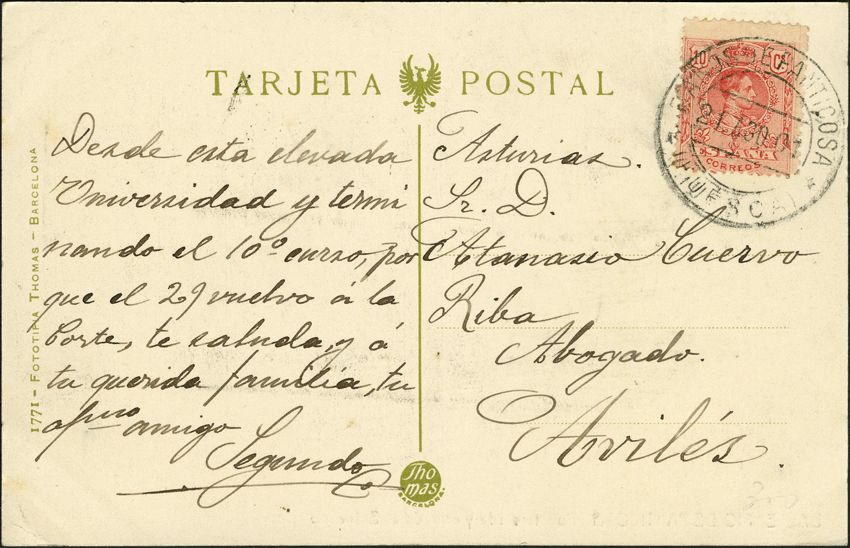 TARJETA POSTAL
Desde esta elevada
Universidad y termi
nando el 10º curso, por
que el 29 vuelvo á la
Corte, te saluda, y á
tu querida familia, tu
afmo amigo
Segundo
Asturias.
Sr. D.
Atanasio Cuervo
Riba
Abogado.
Avilés.
10 Cs
CORREOS
DE PANTICOSA
1771 – FOTOTIPIA THOMAS – BARCELONA
Thomas
BARCELONA